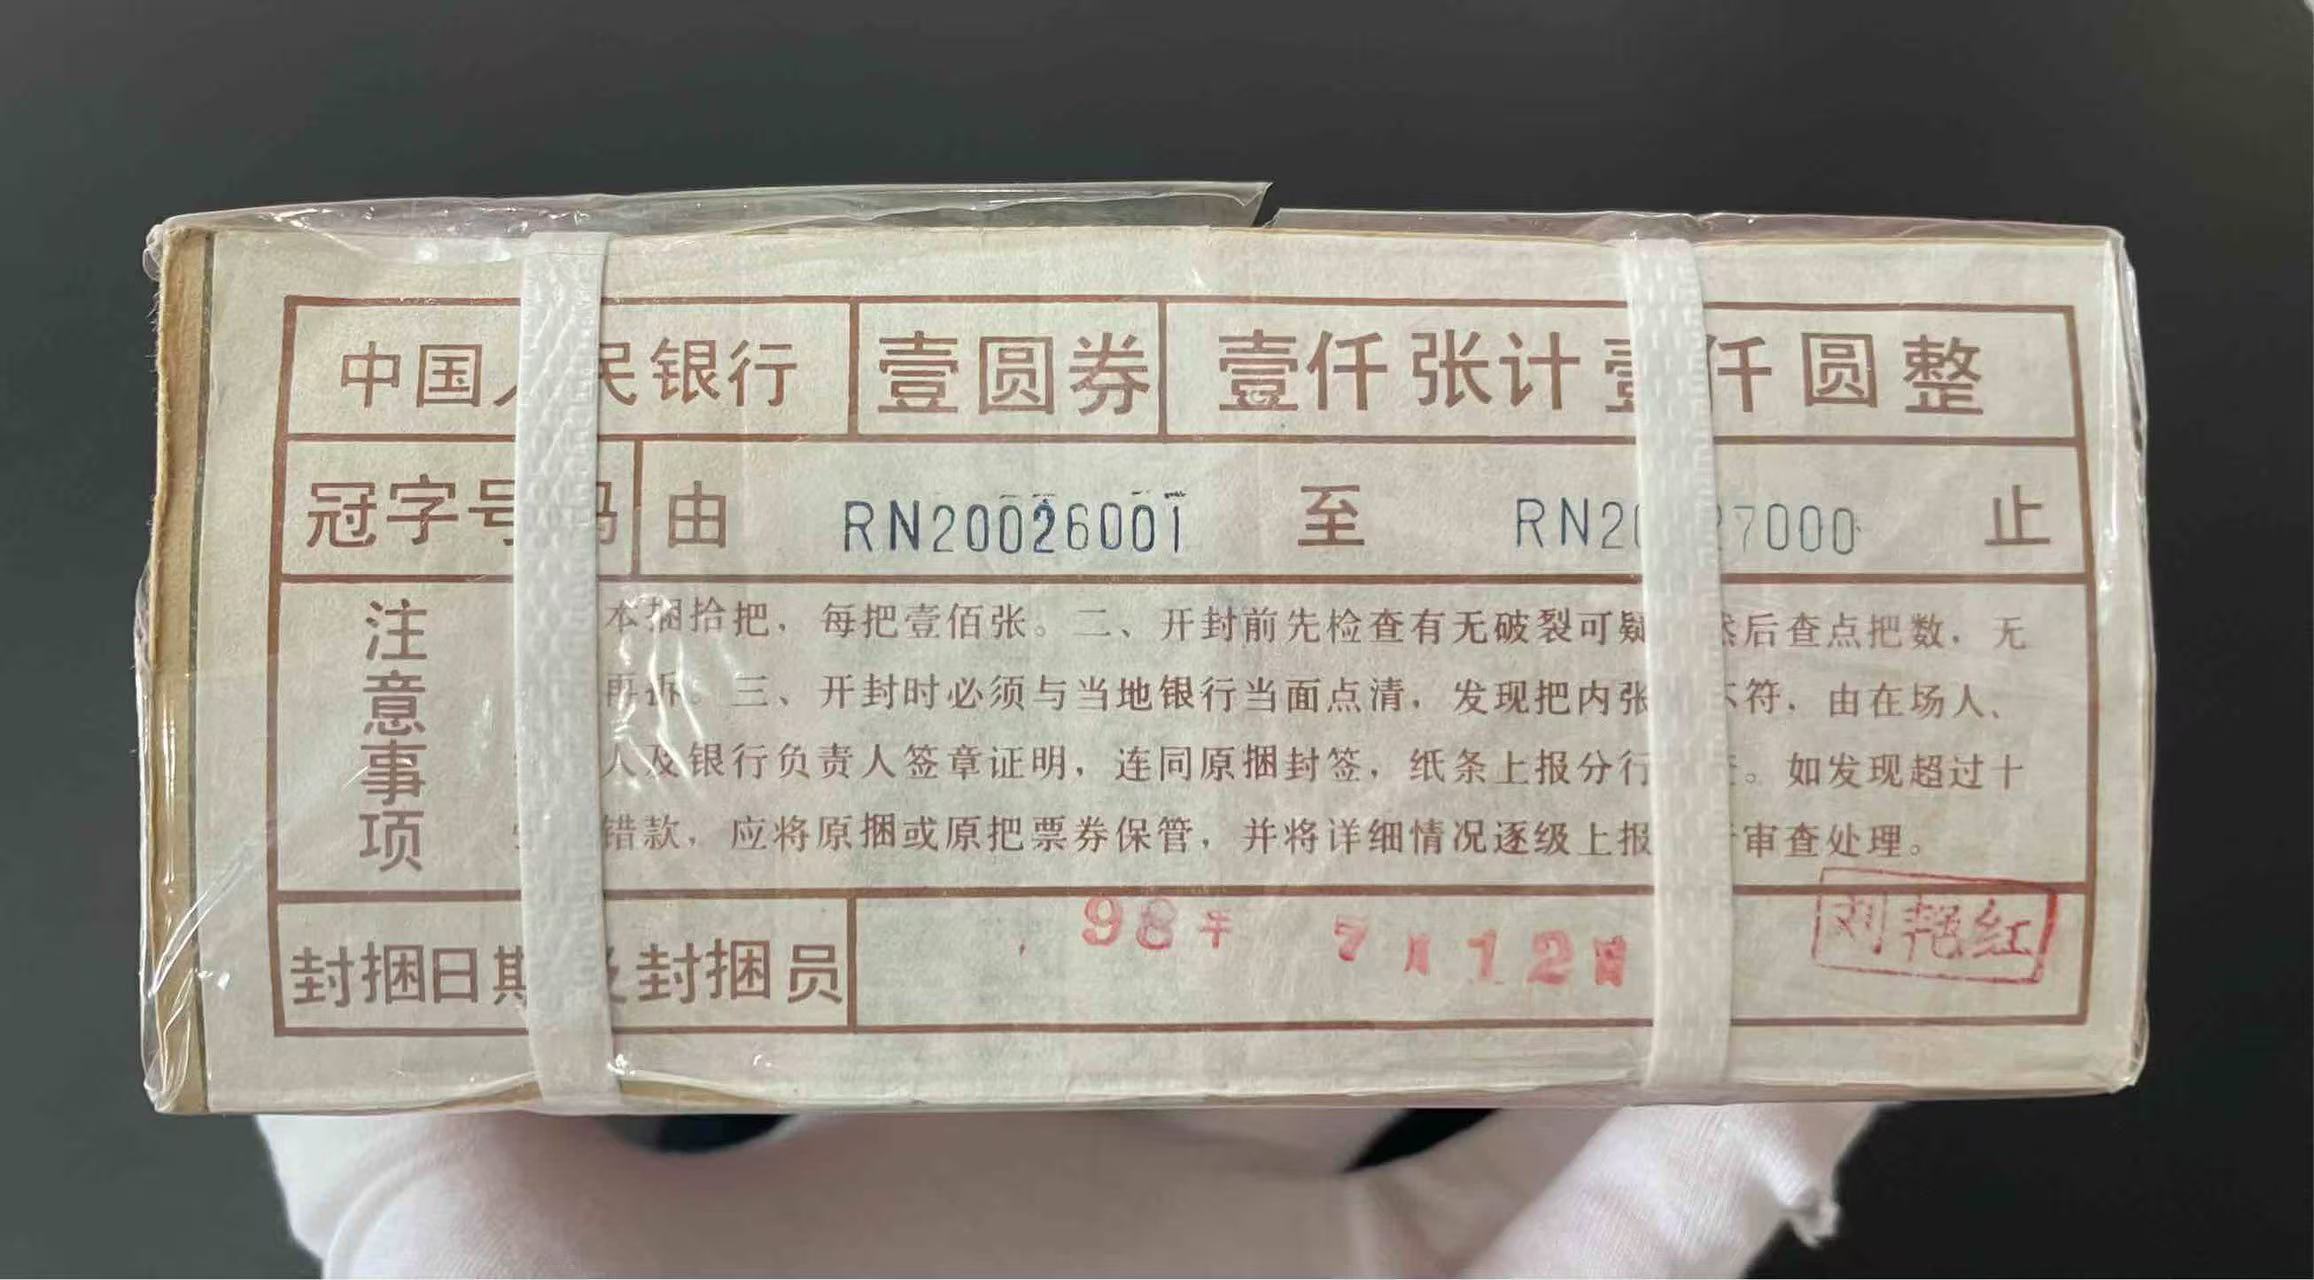 中国人民银行 壹圆券 壹仟张计壹仟圆整
冠字号码 由 RN20026001 至 RN20027000 止
注意事项
本捆拾把，每把壹佰张。二、开封前先检查有无破裂可疑 然后查点把数，无
再拆。三、开封时必须与当地银行当面点清，发现把内张 不符，由在场人、
人及银行负责人签章证明，连同原捆封签，纸条上报分行 。如发现超过十
错款，应将原捆或原把票券保管，并将详细情况逐级上报 审查处理。
封捆日期及封捆员 98年 7月12日 刘艳红